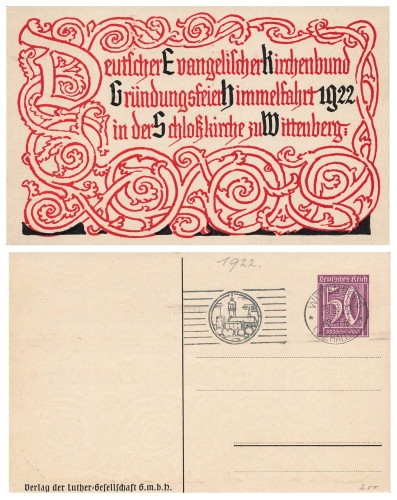 Deutscher Evangelischer Kirchenbund
Gründungsfeier Himmelfahrt 1922
in der Schloßkirche zu Wittenberg:
1922.
Deutsches Reich
50
Verlag der Luther-Gesellschaft G.m.b.H.